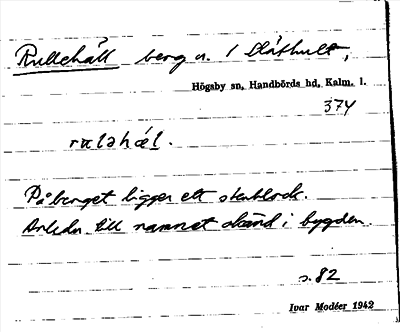 Rullehäll berg n. / Slåthult,
Högsby sn, Handbörds hd, Kalm. l.
374
På berget ligger ett stenblock.
Anledn. till namnet okänd i bygden.
s. 82
Ivar Modéer 1942